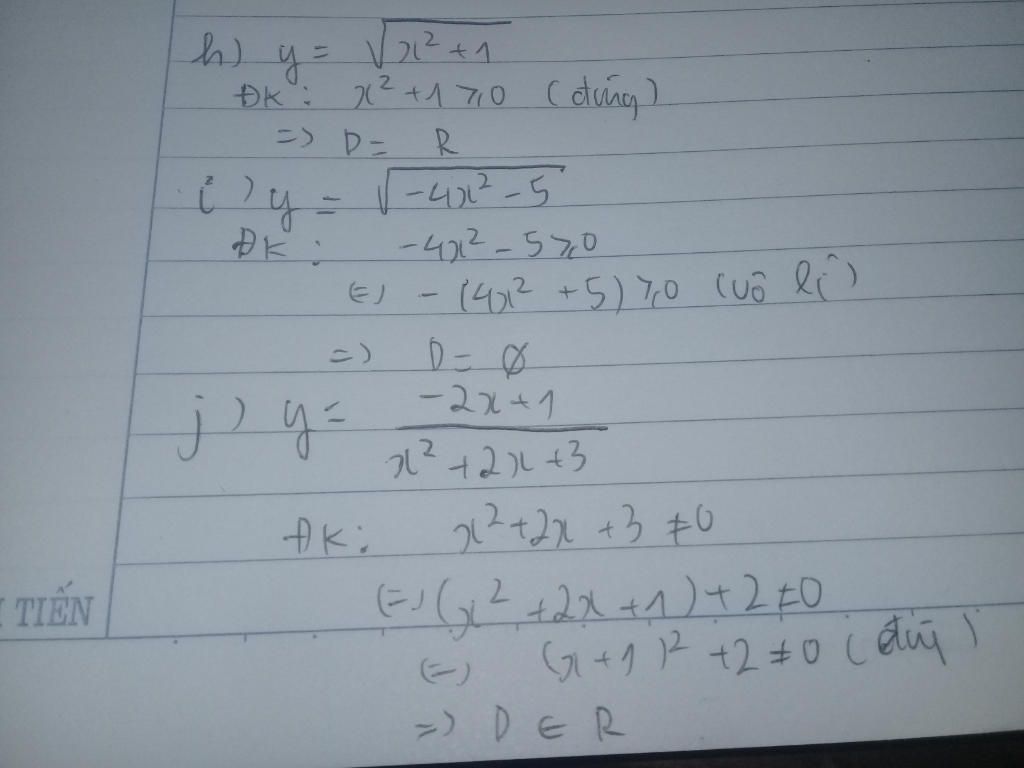 h) y = √(x² + 1)
ĐK : x² + 1 ⩾ 0 (đúng)
=> D = R
i) y = √(-4x² - 5)
ĐK : -4x² - 5 ⩾ 0
(=) - (4x² + 5) ⩾ 0 (vô lí)
=> D = Ø
j) y = (-2x + 1)/(x² + 2x + 3)
ĐK : x² + 2x + 3 ≠ 0
(=) (x² + 2x + 1) + 2 ≠ 0
TIẾN
(=) (x + 1)² + 2 ≠ 0 (đúng)
=> D ∈ R